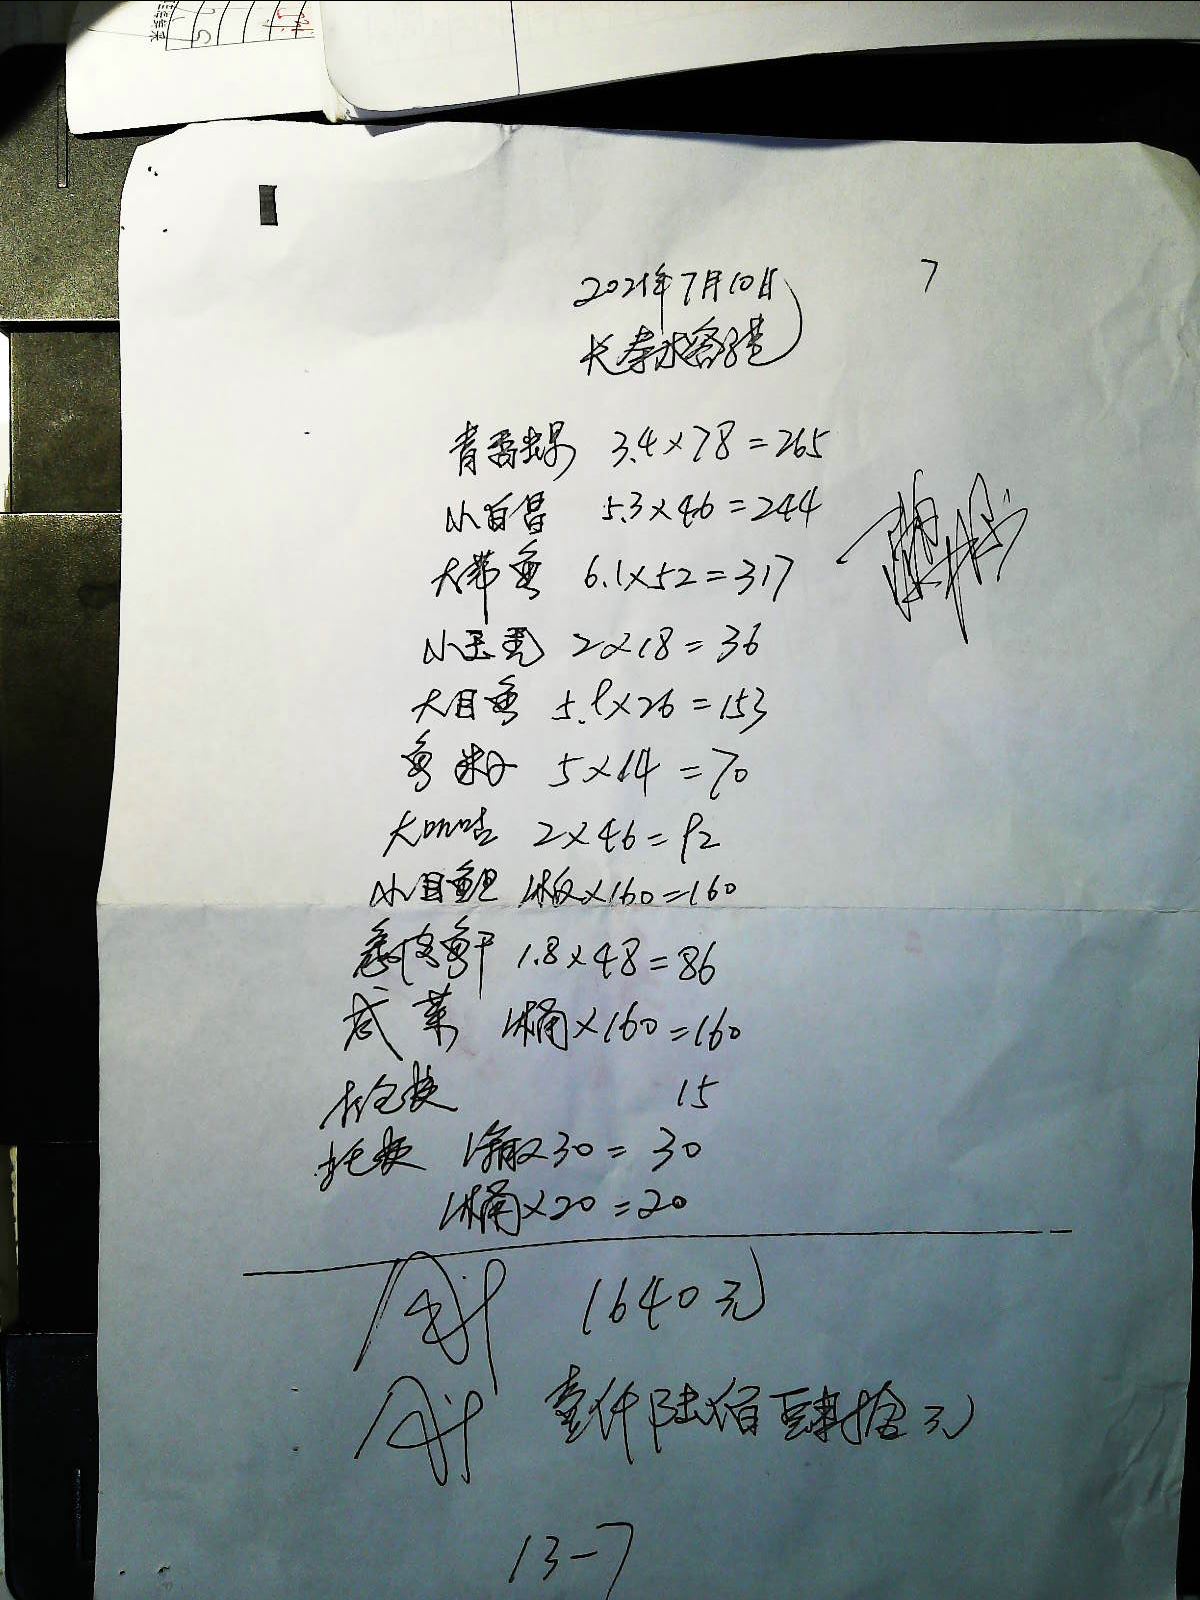 2021年7月10日
7
长泰水
青 3.4×78=265
小白昌 5.3×46=244
大带鱼 6.1×52=317
小 2×18=36
大目鱼 5.9×26=153
鱼 5×14=70
大 2×46=92
小目 1板×160=160
鱼干 1.8×48=86
咸菜 1桶×160=160
15
托 1箱×30=30
1桶×20=20
合计 1640元
合计 壹仟陆佰肆拾元
13-7